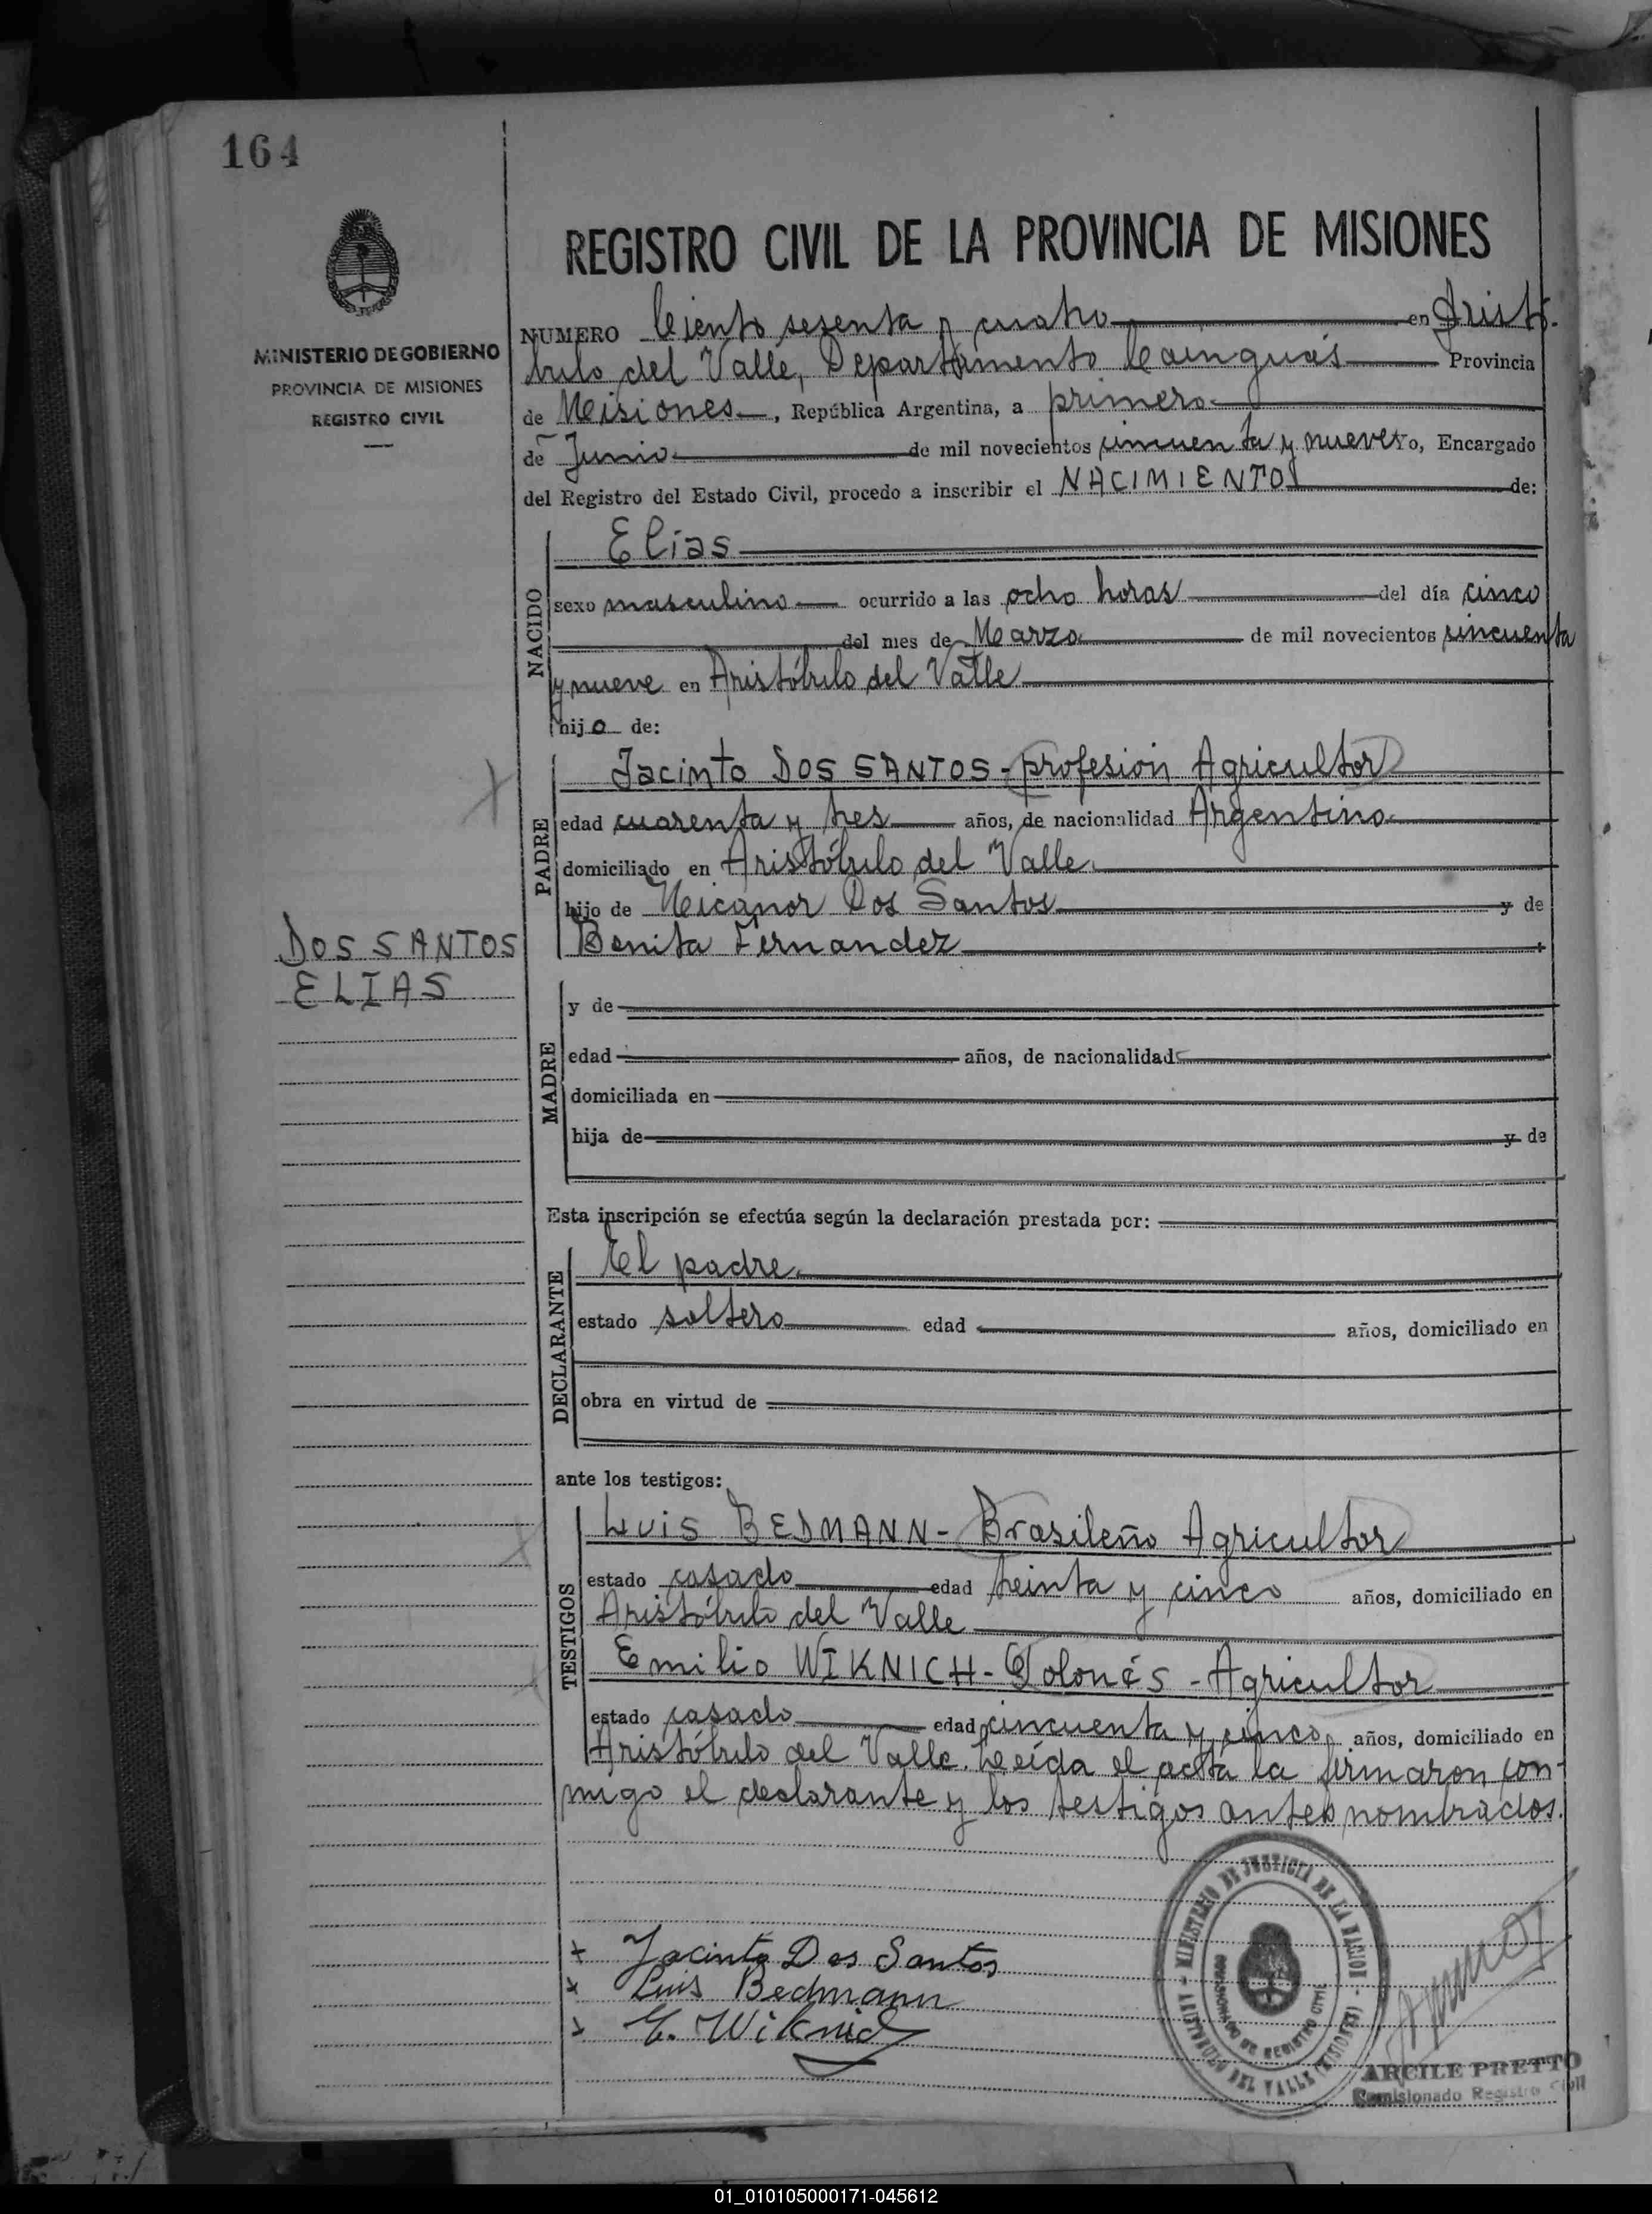 164
MINISTERIO DE GOBIERNO
PROVINCIA DE MISIONES
REGISTRO CIVIL
REGISTRO CIVIL DE LA PROVINCIA DE MISIONES
NUMERO Ciento sesenta y cuatro en Aristó-
bulo del Valle, Departamento Cainguás Provincia
de Misiones, República Argentina, a primero
de Junio de mil novecientos cincuenta y nueve yo, Encargado
del Registro del Estado Civil, procedo a inscribir el NACIMIENTO de:
NACIDO
Elias
sexo masculino ocurrido a las ocho horas del día cinco
del mes de Marzo de mil novecientos cincuenta
y nueve en Aristóbulo del Valle
hijo de:
PADRE
Jacinto DOS SANTOS - profesión Agricultor
edad cuarenta y tres años, de nacionalidad Argentino
domiciliado en Aristóbulo del Valle
hijo de Nicanor Dos Santos y de
Benita Fernandez
DOS SANTOS
ELIAS
MADRE
y de
edad años, de nacionalidad
domiciliada en
hija de y de
Esta inscripción se efectúa según la declaración prestada por:
DECLARANTE
El padre
estado soltero edad años, domiciliado en
obra en virtud de
ante los testigos:
TESTIGOS
Luis BEDMANN - Brasileño Agricultor
estado casado edad treinta y cinco años, domiciliado en
Aristóbulo del Valle
Emilio WIKNICH - Polonés - Agricultor
estado casado edad cincuenta y cinco años, domiciliado en
Aristóbulo del Valle. Leída el acta la firmaron con-
migo el declarante y los testigos antes nombrados.
Jacinto Dos Santos
Luis Bedmann
E. Wiknich
MINISTERIO DE JUSTICIA DE LA NACION - ARISTOBULO DEL VALLE (MISIONES) -
COMISIONADO DE REGISTRO CIVIL
ARCILE PRETTO
Comisionado Registro Civil
01_010105000171-045612